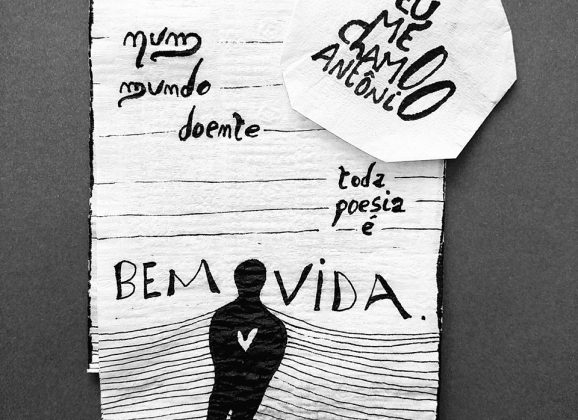 EU
ME
CHAMO
ANTÔNIO
num
mundo
doente
toda
poesia
é
BEM VIDA.